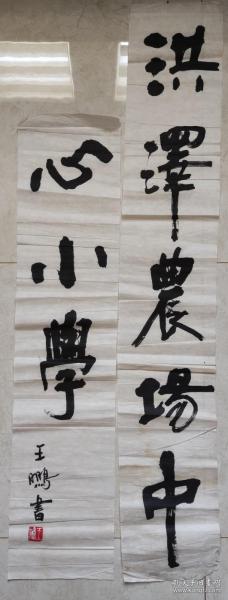 洪澤農場中
心小學
王鵬書